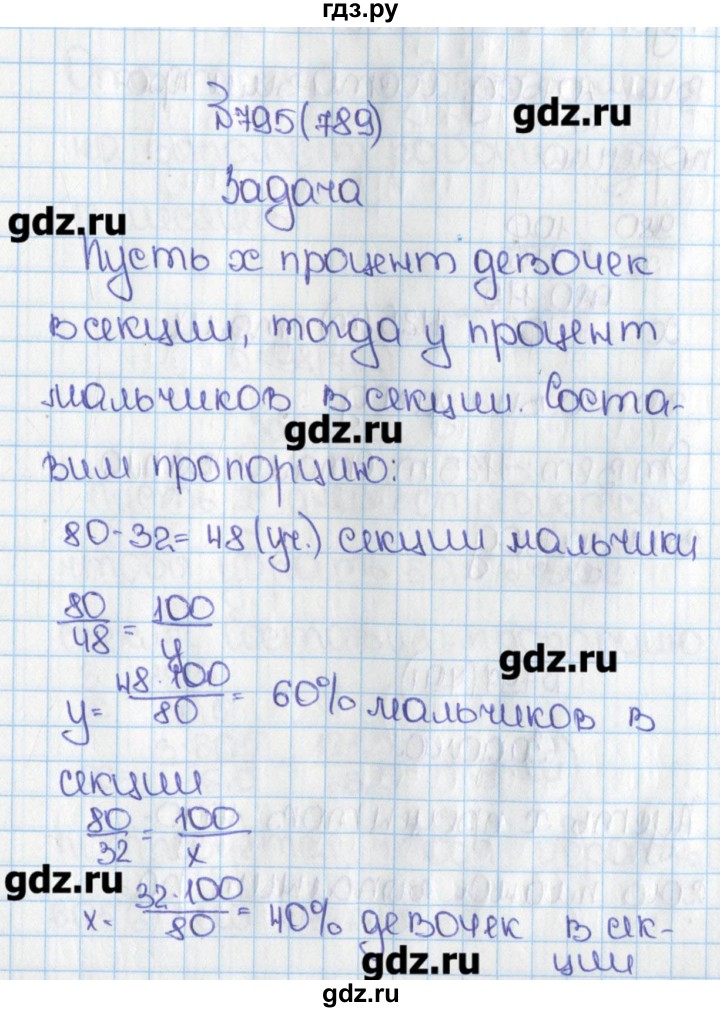 гдз.ру
№795(789)
gdz.ru
Задача
gdz.ru
Пусть x процент девочек
в секции, тогда y процент
мальчиков в секции. Соста-
gdz.ru
вим пропорцию:
80-32= 48 (уч.) секции мальчики
80/48 = 100/y
gdz.ru
y= 48·100/80 = 60% мальчиков в
секции
80/32 = 100/x
gdz.ru
x= 32·100/80 = 40% девочек в сек-
gdz.ru ции
gdz.ru